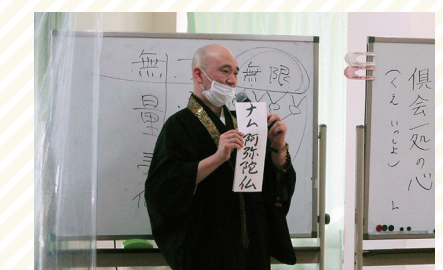 無限
無量
ナム阿弥陀仏
倶会一処の心
(くえ いっしょ)